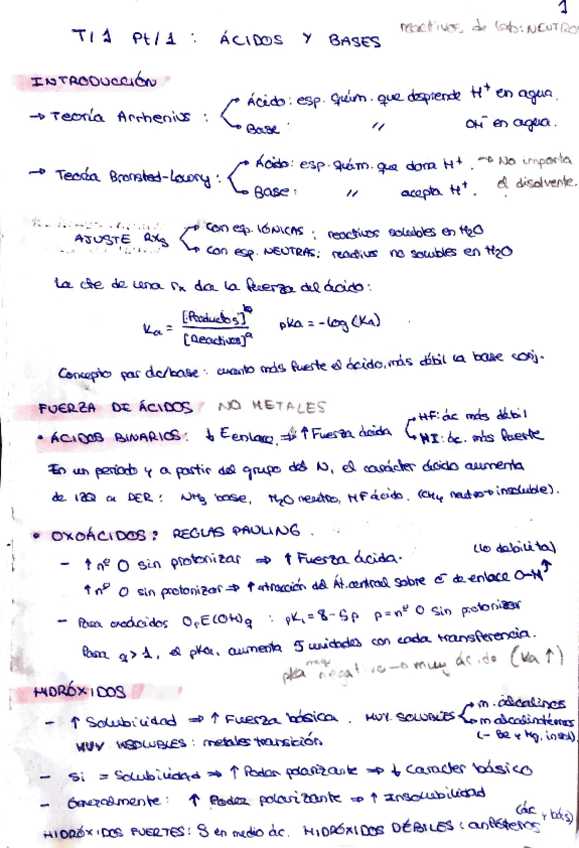 1
T/1 Pt/1 : ÁCIDOS Y BASES
reactivos de lab: NEUTRO
INTRODUCCIÓN
→ Teoría Arrhenius : Ácido: esp. quím. que desprende H⁺ en agua.
Base : " OH⁻ en agua.
→ Teoría Bronsted-Lowry : Ácido: esp. quím. que dona H⁺. → No importa
Base : " acepta H⁺. el disolvente.
AJUSTE RXs con esp. IÓNICAS : reactivos solubles en H₂O
con esp. NEUTRAS: reactivos no solubles en H₂O
La cte de una rx da la fuerza del ácido:
Ka = [Productos]ᵇ / [Reactivos]ᵃ pKa = -log (Ka)
Concepto par ác/base : cuanto más fuerte el ácido, más débil la base conj.
FUERZA DE ÁCIDOS / NO METALES
• ÁCIDOS BINARIOS: ↓ E enlace ⇒ ↑ Fuerza ácida HF: ác más débil
HI: ác. más fuerte
En un periodo y a partir del grupo del N, el carácter ácido aumenta
de IZQ a DER : NH₃ base, H₂O neutro, HF ácido. (CH₄ neutro→insoluble).
• OXOÁCIDOS : REGLAS PAULING.
- ↑ nº O sin protonizar ⇒ ↑ Fuerza ácida. (lo debilita)
↑ nº O sin protonizar ⇒ ↑ atracción del Át. central sobre e⁻ de enlace O-H
- Para oxoácidos OₚE(OH)q : pK₁ = 8-5p p = nº O sin protonizar
Para q > 1, el pKa, aumenta 5 unidades con cada transferencia.
pKa muy negativo → muy ácido (Ka ↑)
HIDRÓXIDOS
- ↑ Solubilidad ⇒ ↑ Fuerza básica. MUY SOLUBLES m. alcalinos
m alcalinotérreos
MUY INSOLUBLES : metales transición (- Be y Mg, insol).
- Si = Solubilidad ⇒ ↑ Poder polarizante ⇒ ↓ Carácter básico
- Generalmente : ↑ Poder polarizante ⇒ ↑ Insolubilidad
HIDRÓXIDOS FUERTES: S en medio ác. HIDRÓXIDOS DÉBILES : anfóteros (ác y bás)